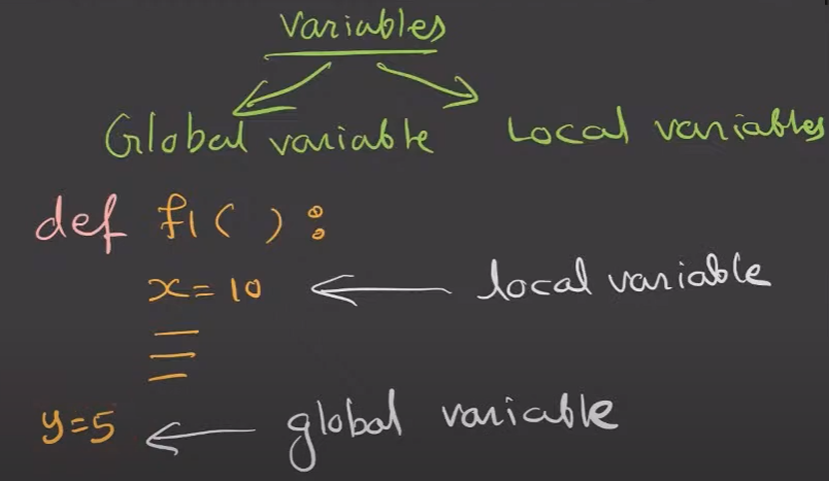 Variables
Global variable Local variables
def f1( ):
x=10 local variable
y=5 global variable